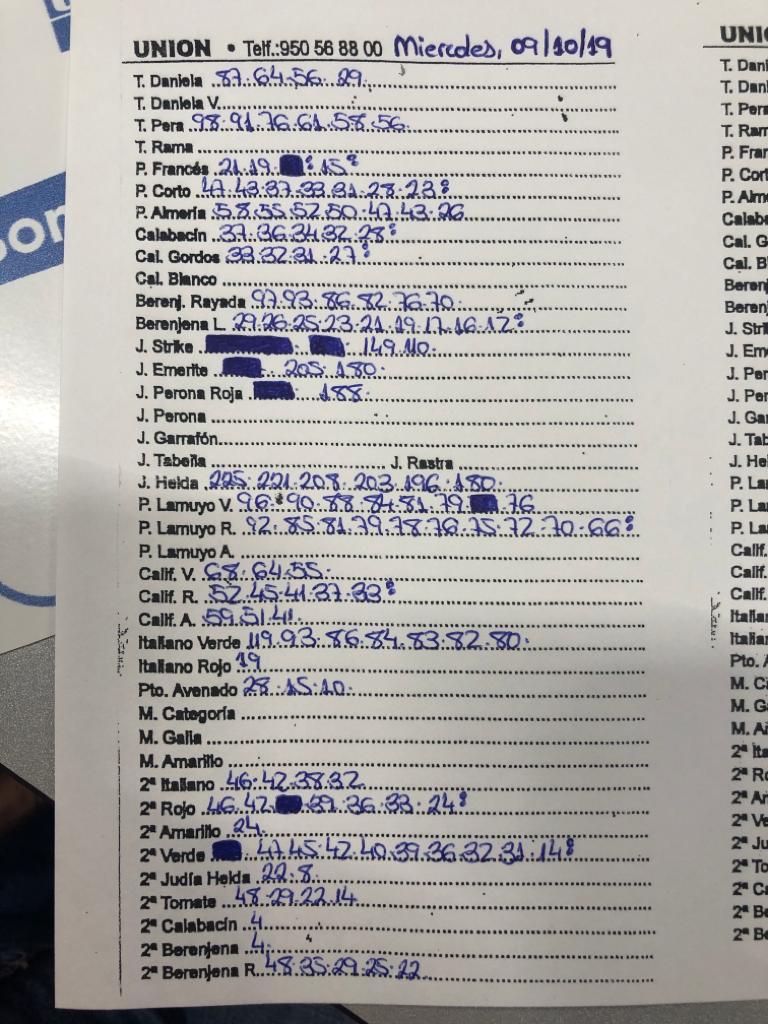 UNION • Telf.:950 56 88 00 Miercoles, 09/10/19
T. Daniela 87.64.56.29.
T. Daniela V.
T. Pera 98.91.76.61.58.56
T. Rama
P. Francés 21.19. : 15:
P. Corto 47.43.37.33.31.28.23:
P. Almería 58.55.52.50.47.43.26
Calabacín 37.36.34.32.28:
Cal. Gordos 33.32.31.27:
Cal. Blanco
Berenj. Rayada 97.93.86.82.76.70.
Berenjena L. 29.26.25.23.21.19.17.16.12:
J. Strike 149.110.
J. Emerite 205.180.
J. Perona Roja 188.
J. Perona
J. Garrafón
J. Tabella J. Rastra
J. Helda 225.221.208.203.196.180.
P. Lamuyo V. 96.90.88.84.81.79. .76
P. Lamuyo R. 92.85.81.79.78.76.75.72.70.66:
P. Lamuyo A.
Calif. V. 68.64.55.
Calif. R. 52.45.41.37.33:
Calif. A. 59.51.41.
Italiano Verde 119.93.86.84.83.82.80.
Italiano Rojo 19
Pto. Avenado 28.15.10.
M. Categoría
M. Galia
M. Amarillo
2ª Italiano 46.42.38.32.
2ª Rojo 46.42. 39.36.33.24:
2ª Amarillo 24.
2ª Verde 47.45.42.40.39.36.32.31.14:
2ª Judía Helda 22.8.
2ª Tomate 48.29.22.14
2ª Calabacín 4
2ª Berenjena 4.
2ª Berenjena R. 48.35.29.25.22
UNIO
T. Dani
T. Dani
T. Pera
T. Ram
P. Fran
P. Cort
P. Alme
Calaba
Cal. G
Cal. B
Berenj
Berenj
J. Stri
J. Em
J. Per
J. Per
J. Ga
J. Tab
J. He
P. La
P. La
P. La
Calif.
Calif.
Calif.
Italia
Italia
Pto. A
M. C
M. G
M. A
2ª Ita
2ª Ro
2ª A
2ª Ve
2ª Ju
2ª To
2ª Ca
2ª Be
2ª Be